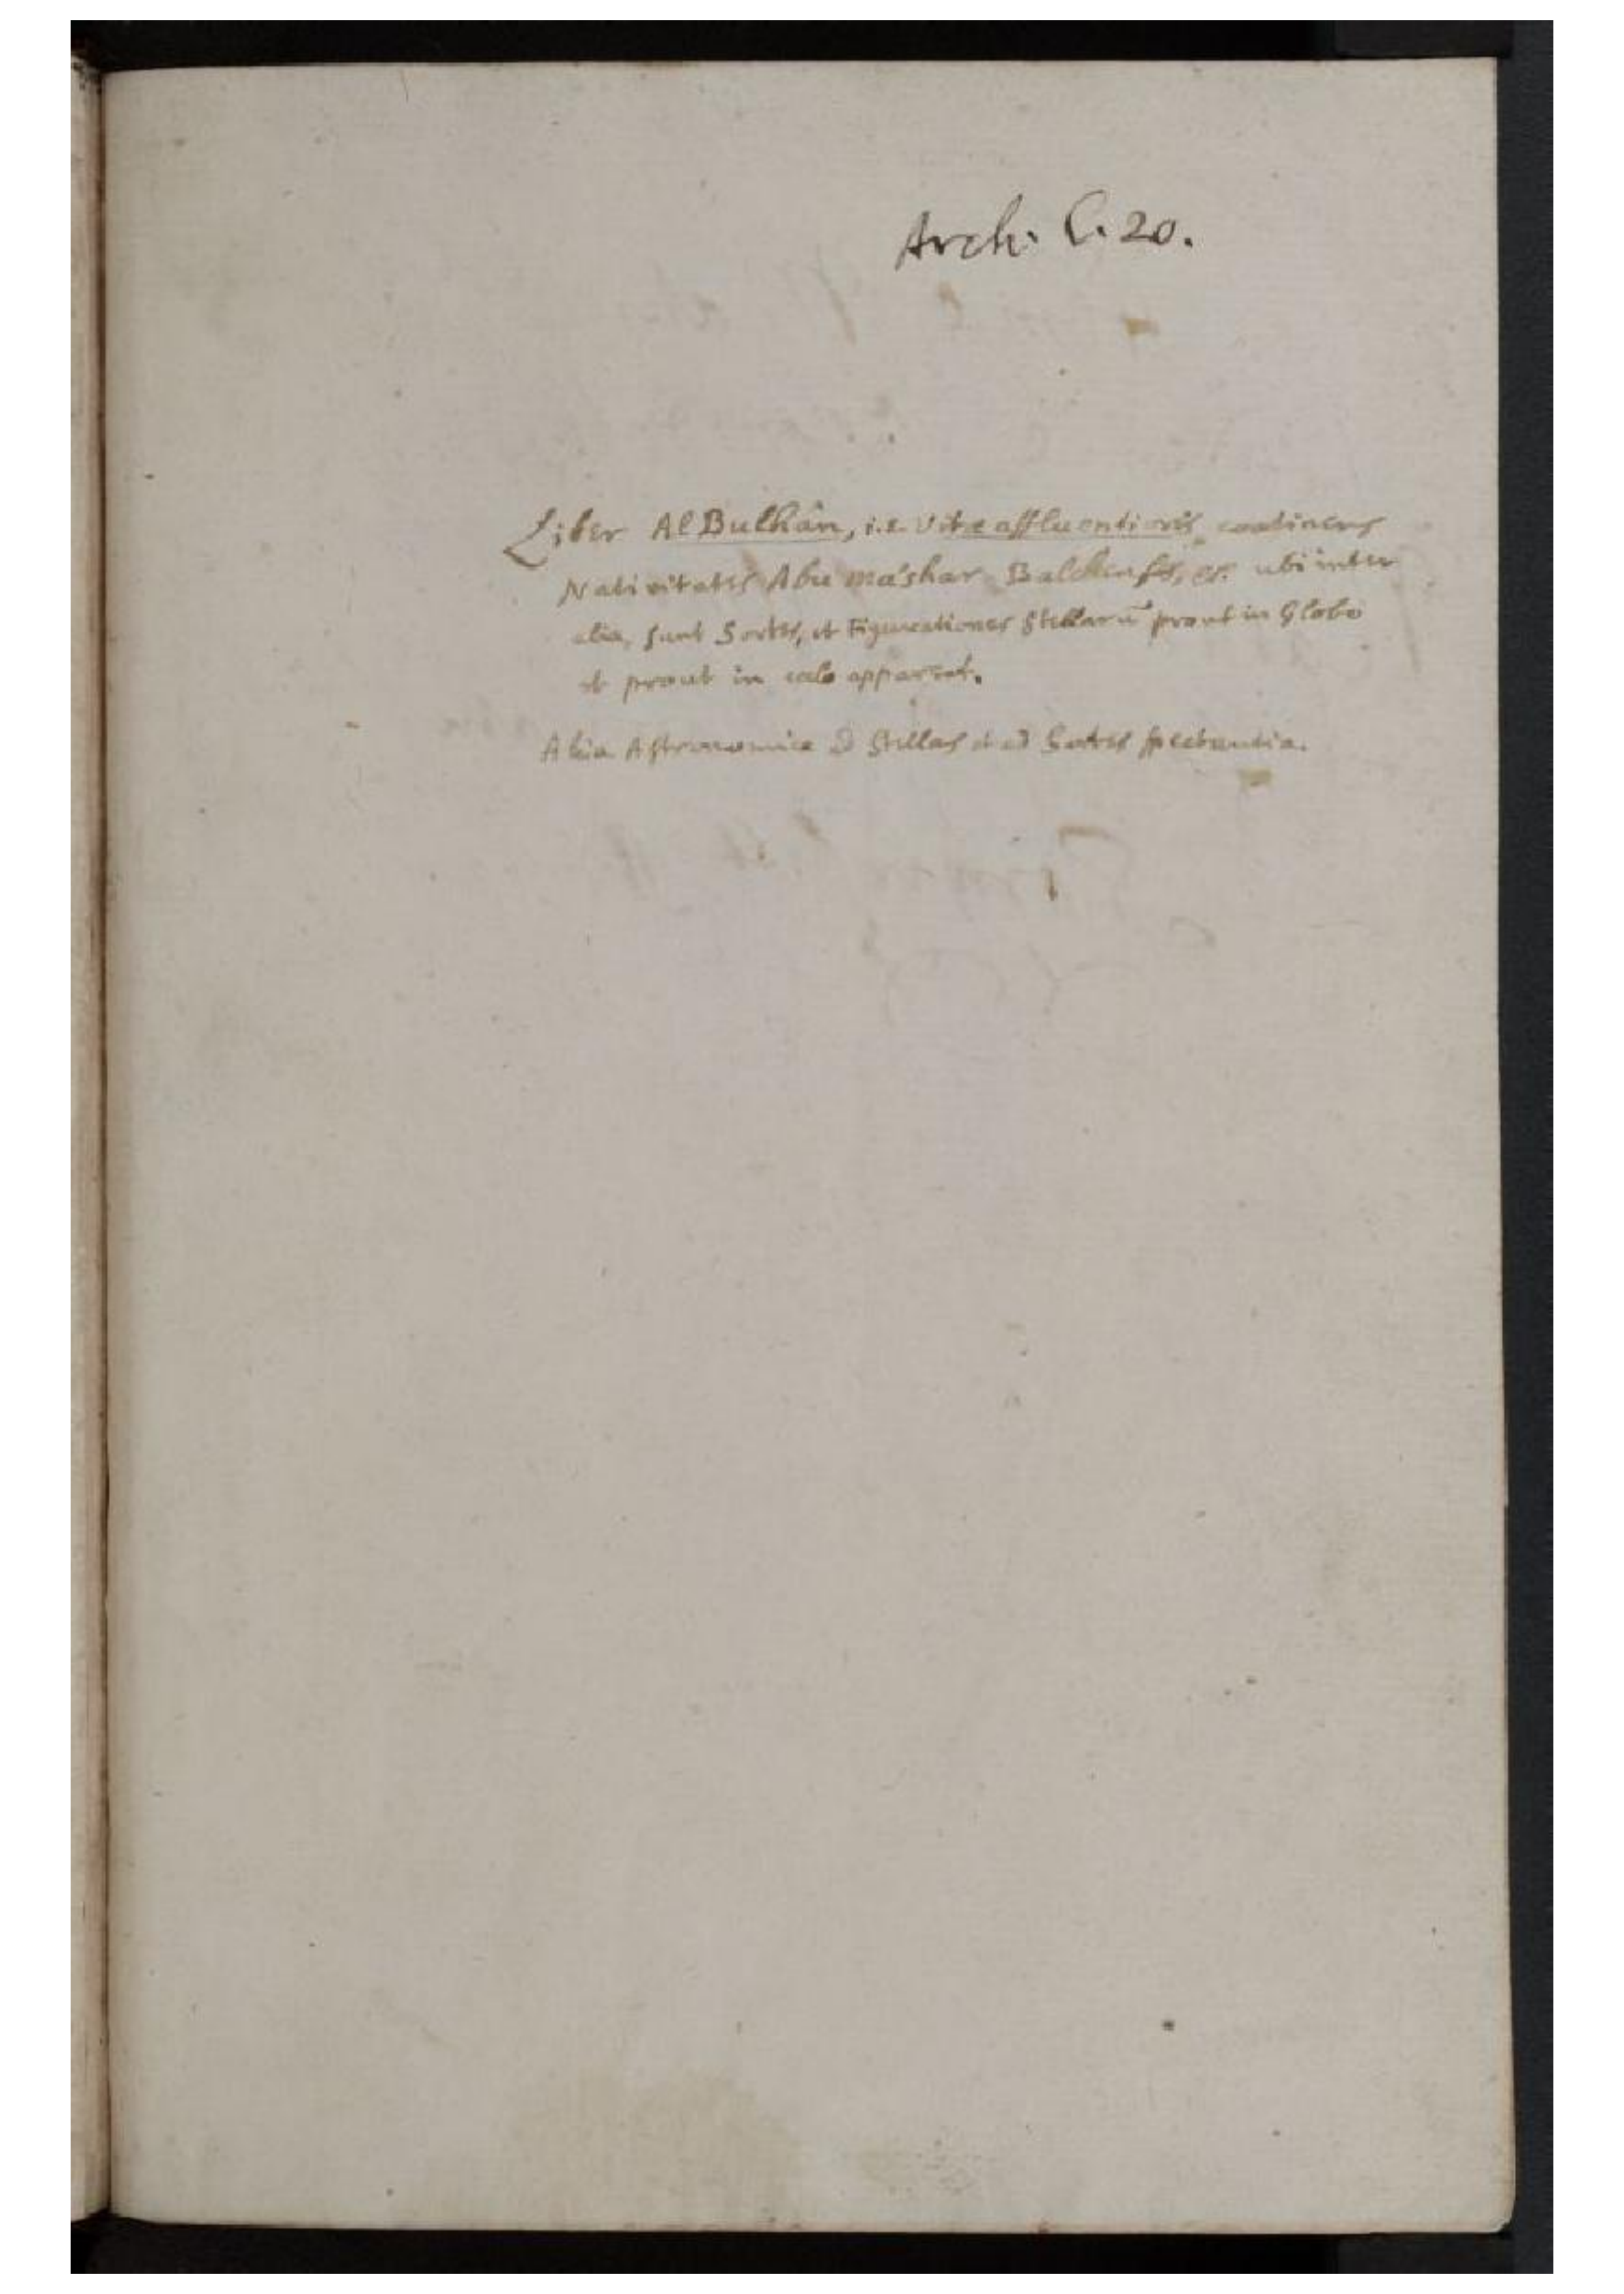 Arch. C. 20.
Liber Al Bulhân, i.e. Vitæ affluentioris, continens
Nativitates Abu ma'shar Balchensis, &c. ubi inter
alia, sunt Sortes, et Figurationes Stellarū prout in Globo
et prout in cælo apparent.
Alia Astronomica ad Stellas et ad Sortes spectantia.